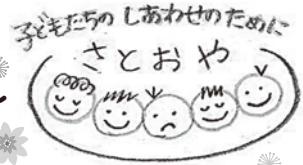 子どもたちの しあわせのために
さとおや